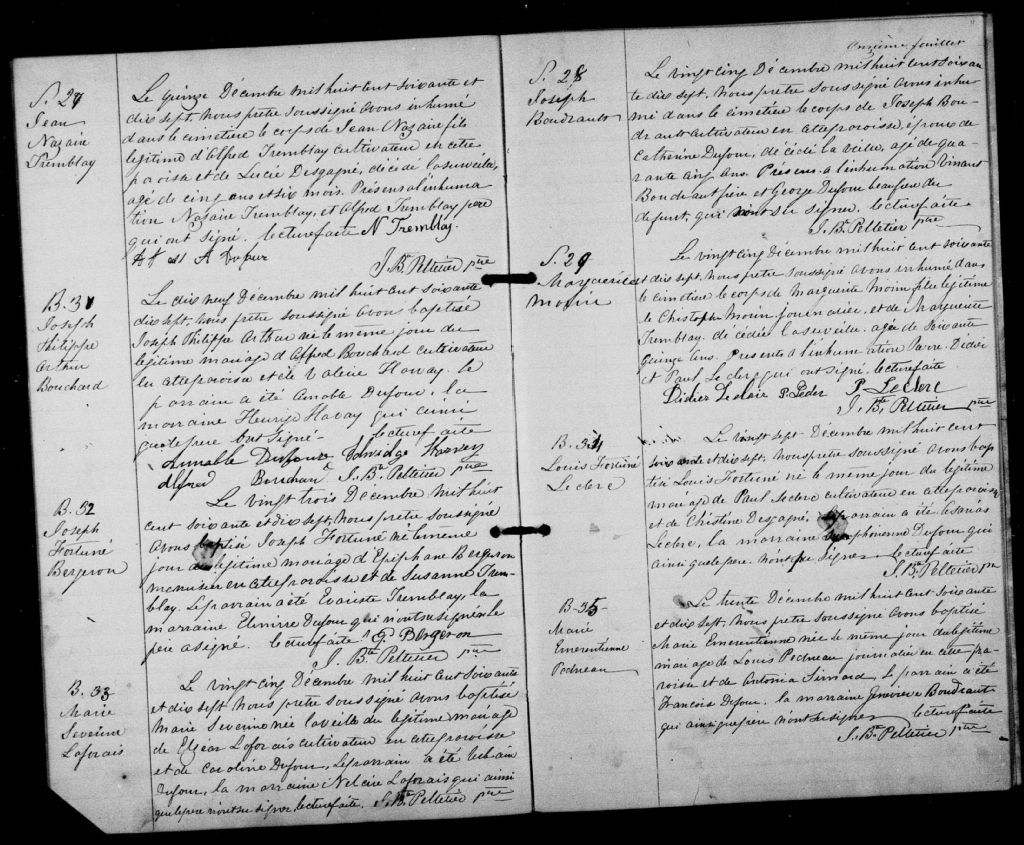 S. 27
Jean
Nazaire
Tremblay
Le quinze Décembre mil huit cent soixante et
dix sept, nous prêtre soussigné avons inhumé
dans le cimetière le corps de Jean Nazaire fils
légitime d'Alfred Tremblay cultivateur en cette
paroisse et de Lucie Desgagné, décédé l'avant veille,
agé de cinq ans et six mois. Présens a l'inhuma
tion Nazaire Tremblay, et Alfred Tremblay père
qui ont signé. lecture faite N Tremblay.
J. Bte Pelletier ptre
B. 31
Joseph
Philippe
Arthur
Bouchard
Le dix neuf Décembre mil huit cent soixante
dix sept, nous prêtre soussigné avons baptisé
Joseph Philippe Arthur né le même jour du
légitime mariage d'Alfred Bouchard cultivateur
en cette paroisse et de Valérie Havay. le
parrain a été Amable Dufour, la
marraine Havay qui ainsi
que le père ont signé. lecture faite
Amable Dufour
Alfred Bouchard J. Bte Pelletier ptre
B. 32
Joseph
Fortuné
Bergeron
Le vingt trois Décembre mil huit
cent soixante et dix sept, nous prêtre soussigné
avons baptisé Joseph Fortuné né le même
jour du légitime mariage d'Epiphane Bergeron
menuisier en cette paroisse et de Susanne Trem-
blay. Le parrain a été Evariste Tremblay, la
marraine Elmire Dufour qui n'ont su signer. le
père a signé. lecture faite Bergeron
J. Bte Pelletier ptre
B. 33
Marie
Severine
Laforais
Le vingt cinq Décembre mil huit cent soixante
et dix sept nous prêtre soussigné avons baptisé
Marie Severine née la veille du légitime mariage
de Elzéar Laforais cultivateur en cette paroisse
et de Caroline Dufour, Le parrain a été Urbain
Dufour, la marraine Laforais qui ainsi
que le père n'ont su signer, lecture faite. J. Bte Pelletier ptre
Onzième feuillet
S. 28
Joseph
Boudrault
Le vingt cinq Décembre mil huit cent soixan
te dix sept, nous prêtre soussigné avons inhu-
mé dans le cimetière le corps de Joseph Bou
drault cultivateur en cette paroisse, époux de
Catherine Dufour, décédé la veille, agé de qua-
rante cinq ans. Présens a l'inhumation
Boudrault frère et George Dufour beaufrère du
defunt, qui n'ont su signer. lecture faite
J. Bte Pelletier ptre
S. 29
Marguerite
Morin
Le vingt cinq Décembre mil huit cent soixante
dix sept, nous prêtre soussigné avons inhumé dans
le cimetière le corps de Marguerite Morin fille légitime
de Christophe Morin journalier, et de Marguerite
Tremblay. décédée l'avant veille. agée de soixante
quinze ans. Presents a l'inhumation Didier
et Paul Leclerc qui ont signé. lecture faite
Didier Leclerc P. Leclerc
J. Bte Pelletier ptre
B. 34
Louis Fortuné
Leclerc
Le vingt sept Décembre mil huit cent
soixante et dix sept, nous prêtre soussigné avons bap
tisé Louis Fortuné né le même jour du légitime
mariage de Paul Leclerc cultivateur en cette paroisse
et de Christine Desgagné, Le parrain a été
Leclerc, la marraine Symphorienne Dufour qui
ainsi que le père n'ont su signer. lecture faite
J. Bte Pelletier ptre
B. 35
Marie
Emerentienne
Pedneau
Le trente Décembre mil huit cent soixante
et dix sept, nous prêtre soussigné avons baptisé
Marie Emerentienne née le même jour du légitime
mariage de Louis Pedneau journalier en cette pa-
roisse et de Antonia Simard. Le parrain a été
François Dufour. la marraine Geneviève Boudrault
qui ainsi que le père n'ont su signer lecture faite
J. Bte Pelletier ptre